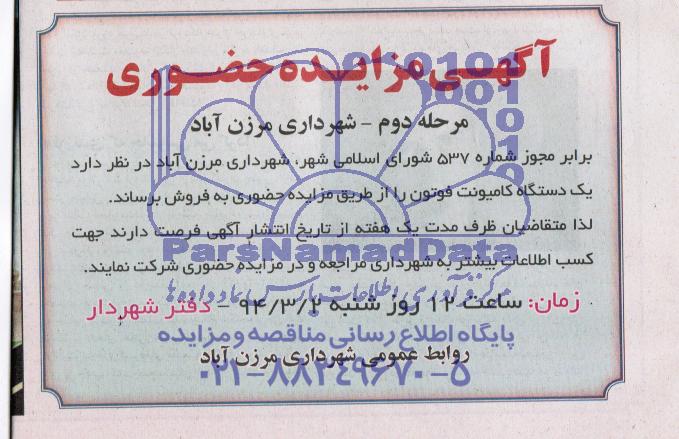 آگهی مزایده حضوری
مرحله دوم - شهرداری مرزن آباد
برابر مجوز شماره ۵۳۷ شورای اسلامی شهر، شهرداری مرزن آباد در نظر دارد
یک دستگاه کامیونت فوتون را از طریق مزایده حضوری به فروش برساند.
لذا متقاضیان ظرف مدت یک هفته از تاریخ انتشار آگهی فرصت دارند جهت
ParsNamadData
کسب اطلاعات بیشتر به شهرداری مراجعه و در مزایده حضوری شرکت نمایند.
مرکز فرآوری اطلاعات پارس نماد داده ها
زمان: ساعت ۱۲ روز شنبه ۹۴/۳/۲ - دفتر شهردار
پایگاه اطلاع رسانی مناقصه و مزایده
روابط عمومی شهرداری مرزن آباد
۰۲۱-۸۸۳۴۹۶۷۰-۵